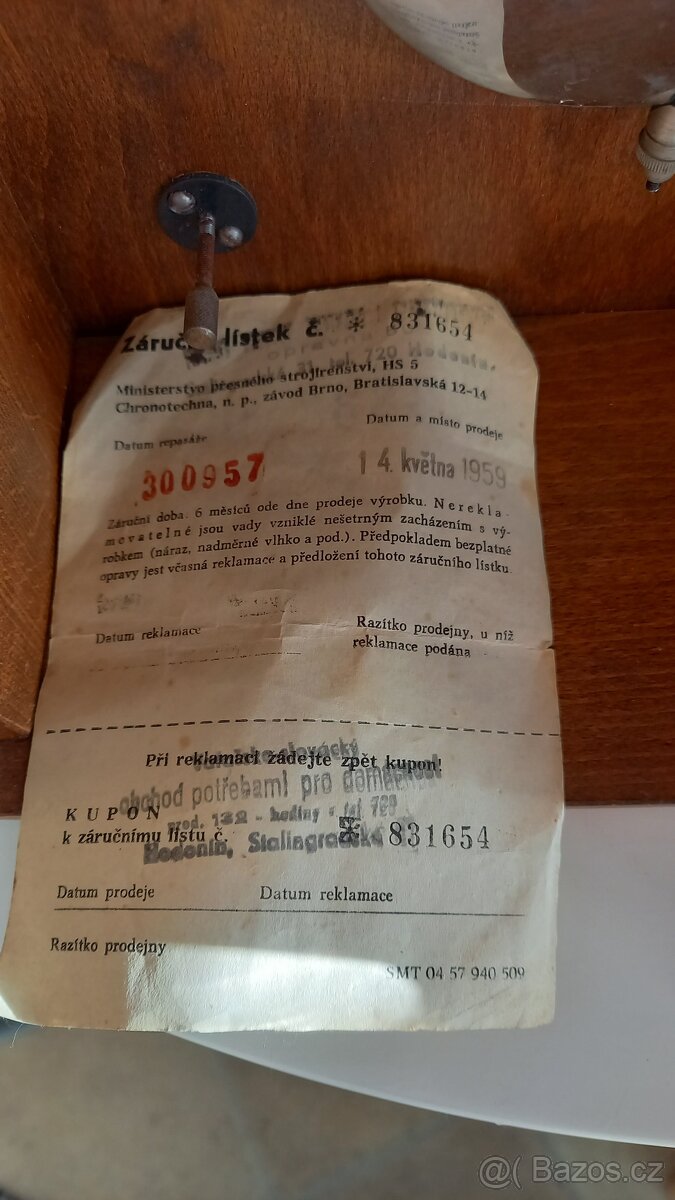 Záruční lístek č. * 831654
opravna
tel. 720 Hodonín,
Ministerstvo přesného strojírenství, HS 5
Chronotechna, n. p., závod Brno, Bratislavská 12-14
Datum repasáže
Datum a místo prodeje
300957
14. května 1959
Záruční doba. 6 měsíců ode dne prodeje výrobku. Nerekla-
movatelné jsou vady vzniklé nešetrným zacházením s vý-
robkem (náraz, nadměrné vlhko a pod.). Předpokladem bezplatné
opravy jest včasná reklamace a předložení tohoto záručního lístku.
Datum reklamace
Razítko prodejny, u níž
reklamace podána
Při reklamaci žádejte zpět kupon!
obchod potřebami pro domácnost
prod. 132 - hodiny - tel 720
KUPON
k záručnímu lístu č. * 831654
Hodonín,
Datum prodeje
Datum reklamace
Razítko prodejny
SMT 04 57 940 509
@( Bazos.cz